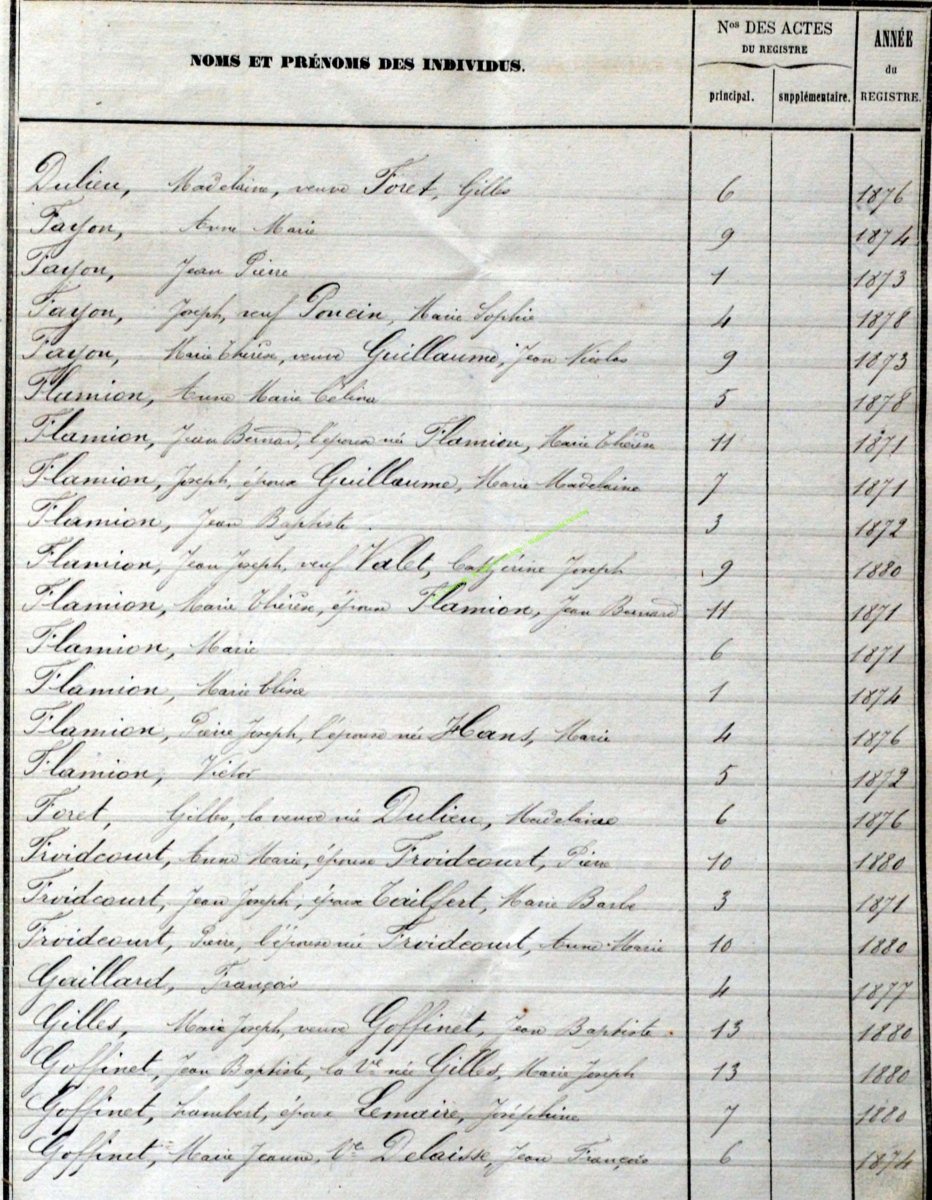 NOMS ET PRÉNOMS DES INDIVIDUS.
Nos DES ACTES
DU REGISTRE
principal. supplémentaire.
ANNÉE
du
REGISTRE.
Dulieu, Madelaine, veuve Foret, Gilles 6 1876
Fayon, Anne Marie 9 1874
Fayon, Jean Pierre 1 1873
Fayon, Joseph, veuf Poncin, Marie Sophie 4 1878
Fayon, Marie Thérèse, veuve Guillaume, Jean Nicolas 9 1873
Flamion, Anne Marie Célina 5 1878
Flamion, Jean Bernard, l'épouse née Flamion, Marie Thérèse 11 1871
Flamion, Joseph, époux Guillaume, Marie Madelaine 7 1871
Flamion, Jean Baptiste 3 1872
Flamion, Jean Joseph, veuf Valet, Cathérine Joseph 9 1880
Flamion, Marie Thérèse, épouse Flamion, Jean Bernard 11 1871
Flamion, Marie 6 1871
Flamion, Marie 1 1874
Flamion, Pierre Joseph, l'épouse née Hans, Marie 4 1876
Flamion, Victor 5 1872
Foret, Gilles, la veuve née Dulieu, Madelaine 6 1876
Froidcourt, Anne Marie, épouse Froidcourt, Pierre 10 1880
Froidcourt, Jean Joseph, époux Tailfert, Marie Barbe 3 1871
Froidcourt, Pierre, l'épouse née Froidcourt, Anne Marie 10 1880
Gaillard, François 4 1877
Gilles, Marie Joseph, veuve Goffinet, Jean Baptiste 13 1880
Goffinet, Jean Baptiste, la Ve née Gilles, Marie Joseph 13 1880
Goffinet, Lambert, époux Lemaire, Joséphine 7 1880
Goffinet, Marie Jeanne, Ve Delaisse, Jean François 6 1874